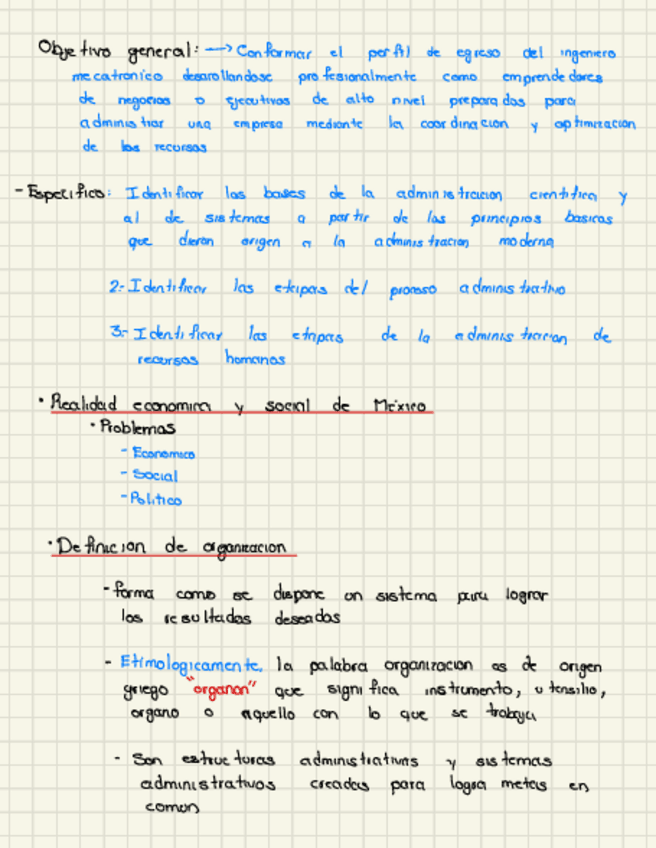 Objetivo general: → Conformar el perfil de egreso del ingeniero
mecatronico desarollandose profesionalmente como emprendedores
de negocios o ejecutivos de alto nivel preparados para
administrar una empresa mediante la coordinacion y optimizacion
de los recursos
- Especifico: Identificar las bases de la administracion cientifica y
al de sistemas a partir de los principios basicos
que dieron origen a la administracion moderna
2.- Identificar las etapas del proceso administrativo
3.- Identificar las etapas de la administracion de
recursos humanos
• Realidad economica y social de México
• Problemas
- Economico
- Social
- Politico
• Definicion de organizacion
- forma como se dispone un sistema para lograr
los resultados deseados
- Etimologicamente, la palabra organizacion es de origen
griego "organon" que significa instrumento, utensilio,
organo o aquello con lo que se trabaja
- Son estructuras administrativas y sistemas
administrativos creadas para logra metas en
comun